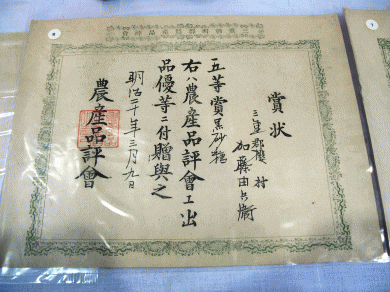 賞状
加藤由兵衛
五等賞黒砂糖
右ハ農産品評會エ出
品優等ニ付贈與之
明治二十年三月九日
農産品評會